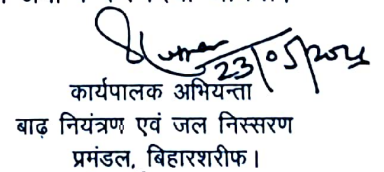 23/05/2024
कार्यपालक अभियन्ता
बाढ़ नियंत्रण एवं जल निस्सरण
प्रमंडल, बिहारशरीफ।